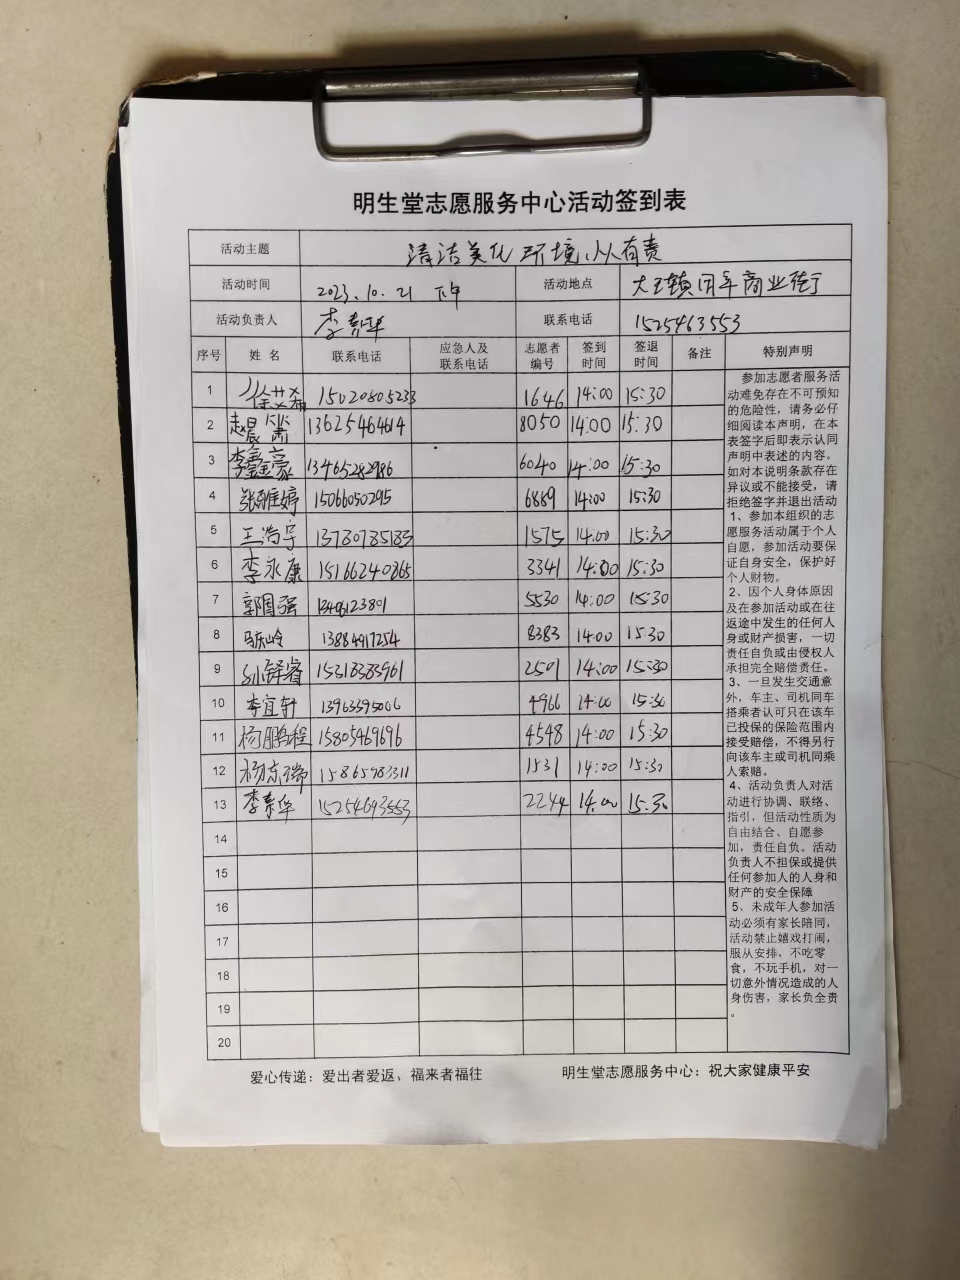 明生堂志愿服务中心活动签到表
活动主题 清洁美化环境,人人有责
活动时间 2023.10.21 下午 活动地点 大王镇同年商业街
活动负责人 李素华 联系电话 1525463553
序号 姓名 联系电话 应急人及联系电话 志愿者编号 签到时间 签退时间 备注 特别声明
1 徐艺希 15020805233 1646 14:00 15:30
2 赵晨 13625464614 8050 14:00 15:30
3 李鑫豪 13465282986 6040 14:00 15:30
4 张雅婷 15066050295 6889 14:00 15:30
5 王浩宇 13780785183 1575 14:00 15:30
6 李永康 3341 14:00 15:30
7 郭国强 5530 14:00 15:30
8 马庆岭 13884917254 8383 14:00 15:30
9 舒睿 15318383961 2501 14:00 15:30
10 李宜轩 13963395006 4966 14:00 15:30
11 杨鹏程 15805469696 4548 14:00 15:30
12 杨东瑞 15865983311 1531 14:00 15:30
13 李素华 15254693553 2244 14:00 15:30
14
15
16
17
18
19
20
参加志愿者服务活
动难免存在不可预知
的危险性，请务必仔
细阅读本声明，在本
表签字后即表示认同
声明中表述的内容。
如对本说明条款存在
异议或不能接受，请
拒绝签字并退出活动
1、参加本组织的志
愿服务活动属于个人
自愿，参加活动要保
证自身安全，保护好
个人财物。
2、因个人身体原因
及在参加活动或在往
返途中发生的任何人
身或财产损害，一切
责任自负或由侵权人
承担完全赔偿责任。
3、一旦发生交通意
外，车主、司机同车
搭乘者认可只在该车
已投保的保险范围内
接受赔偿，不得另行
向该车主或司机同乘
人索赔。
4、活动负责人对活
动进行协调、联络、
指引，但活动性质为
自由结合、自愿参
加，责任自负。活动
负责人不担保或提供
任何参加人的人身和
财产的安全保障
5、未成年人参加活
动必须有家长陪同，
活动禁止嬉戏打闹，
服从安排，不吃零
食，不玩手机，对一
切意外情况造成的人
身伤害，家长负全责
。
爱心传递：爱出者爱返、福来者福往 明生堂志愿服务中心：祝大家健康平安